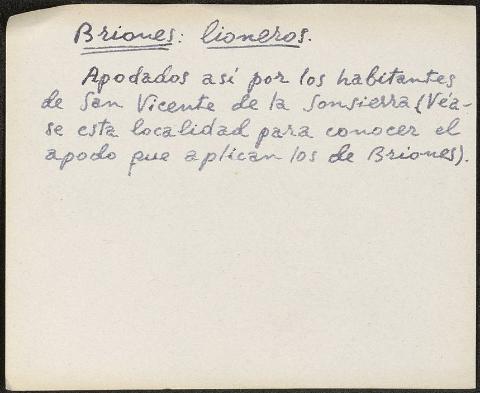 Briones: lioneros.
Apodados así por los habitantes
de San Vicente de la Sonsierra (Véa-
se esta localidad para conocer el
apodo que aplican los de Briones).